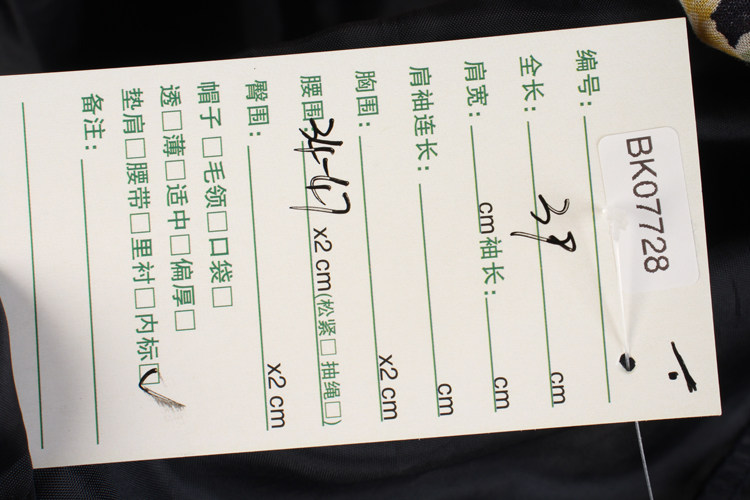 编号: BK07728
全长: 39 cm
肩宽: cm 袖长: cm
肩袖连长: cm
胸围: x2 cm
腰围: x2 cm (松紧□ 抽绳□)
臀围: x2 cm
帽子 □毛领□口袋□
透□薄□适中□偏厚□
垫肩□腰带□里衬□内标☑
备注: